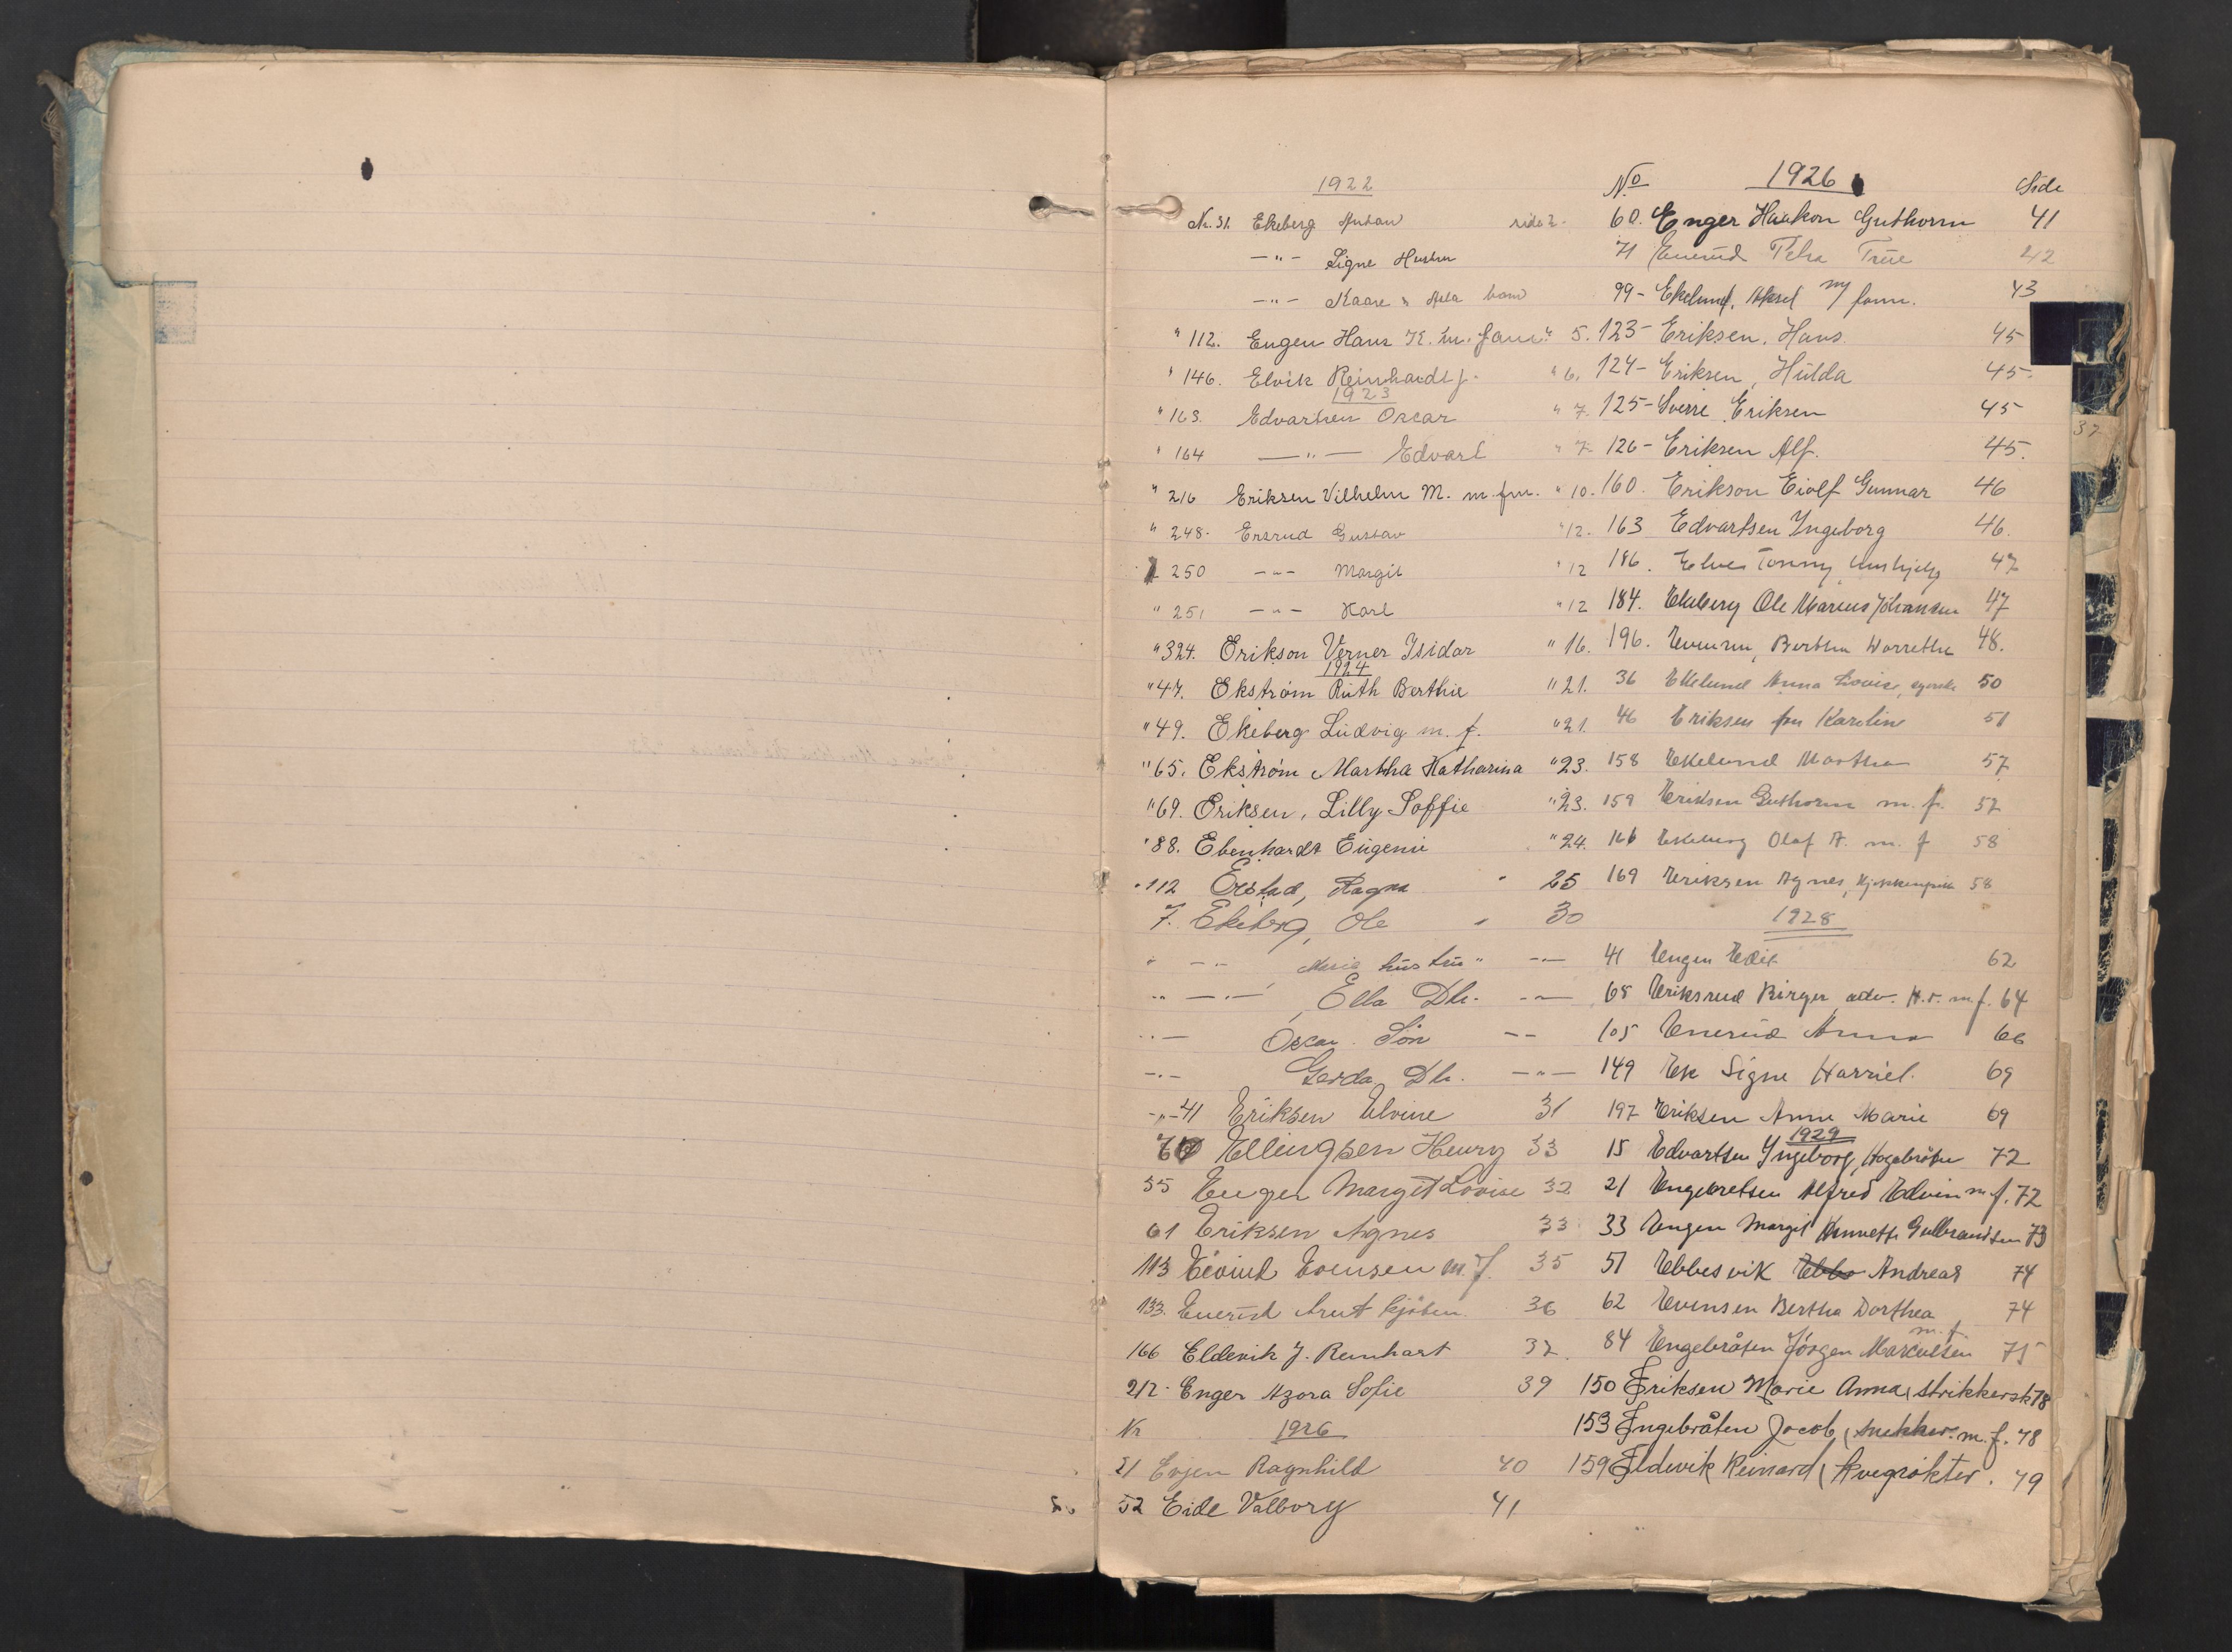 1922
Nr. 31. Ekeberg Gustav side 2.
—"— Signe Hustru
—"— Kaare & Aela barn
" 112. Engen Hans K. m. fam. " 5.
" 146. Elvik Reinhardt J. " 6.
1923
" 163. Edvartsen Oscar " 7.
" 164 —"— Edvart " 7
" 216 Eriksen Vilhelm M. m. fm. " 10.
" 248. Ersrud Gustav " 12.
" 250 —"— Margit " 12
" 251 —"— Karl " 12
" 324. Erikson Verner Isidor " 16.
1924
" 47. Ekstrøm Ruth Berthie " 21.
" 49. Ekeberg Ludvig m. f. " 21.
" 65. Ekstrøm Martha Katharina " 23.
" 69. Eriksen, Lilly Soffie " 23.
" 88. Ebenhardt Eugenie " 24.
" 112 Erstad, Ragna " 25
7. Ekeberg, Ole " 30
" —"— Maria hustru " —"—
" —"— Ella Dtr. —"—
" — Oscar Søn — —
—"— Gerda Dtr. —"—
—"— 41 Eriksen Elvine 31
60 Ellingsen Henry 33
55 Enger Margit Lovise 32
61 Eriksen Agnes 33
113 Eivind Evensen m. f. 35
133. Enerud Arnt kjøbm. 36
166 Eldevik J. Reinhart 37.
212. Enger Azora Sofie 39
Nr 1926
21 Evjen Ragnhild 40
52 Eide Valborg 41
No 1926 Side
60. Enger Haakon Guthorm 41
71 Enerud Petra Frue 42
99 - Ekelund, Aksel m/ fam. 43
123 - Eriksen, Hans. 45
124 - Eriksen, Hulda 45.
125 - Sverre Eriksen 45
126 - Eriksen Alf. 45.
160. Erikson Eiolf Gunnar 46
163 Edvartsen Ingeborg 46.
186. Elves Tonny, hushjelp 47
184. Ekeberg Ole Marius Johansen 47
196. Evensen, Bertha Dorrethe 48.
36 Ekelund Anna Lovise, syerske 50
46 Eriksen fru Karoline 51
158 Ekelund Martha 57
159 Eriksen Guthorm m. f. 57
166 Ekeberg Olaf A. m. f 58
169 Eriksen Agnes, kjøkkenpike 58
1928
41 Engen Edit 62
68 Eriksrud Birger adv. H.r. m f. 64
105 Enerud Anna 66
149 Ek Signe Harriet. 69
197 Eriksen Anne Marie 69
1929
15 Edvartsen Ingeborg, Hagabråten 72
21 Engebretsen Alfred Edvin m f. 72
33 Engen Margit Annette Gulbrandsen 73
51 Ebbesvik Ebbe Andreas 74
62 Evensen Bertha Dorthea 74
84 Engebråten Jørgen Marcelsen m. f. 75
150 Eriksen Marie Anna, strikkersk 78
153 Engebråten Jacob, snekker m. f. 78
159 Eldevik Reinard, kvegrøkter. 79
37